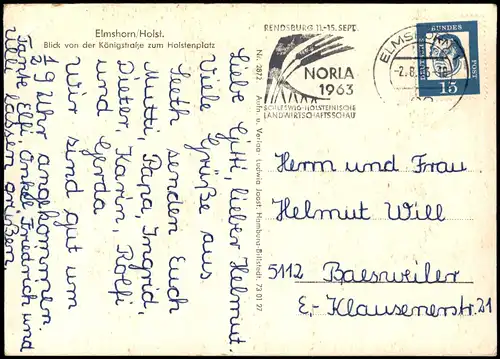 Elmshorn/Holst.
Blick von der Königstraße zum Holstenplatz
Liebe Gitti, lieber Helmut.
Viele Grüße aus
Seeth senden Euch
Mutti, Papa, Ingrid,
Dieter, Karin, Rolfi
und Gerda
Wir sind gut um
19 Uhr angekommen
Tante Elli, Onkel Friedrich und
Uli lassen grüßen.
Nr. 2872 Aufn. u. Verlag Ludwig Joost, Hamburg-Billstedt 73 01 27
RENDSBURG 11.-15. SEPT.
NORLA
1963
SCHLESWIG-HOLSTEINISCHE
LANDWIRTSCHAFTSSCHAU
DEUTSCHE BUNDESPOST
15
Herrn und Frau
Helmut Will
5112 Baesweiler
E.-Klausenerstr. 21